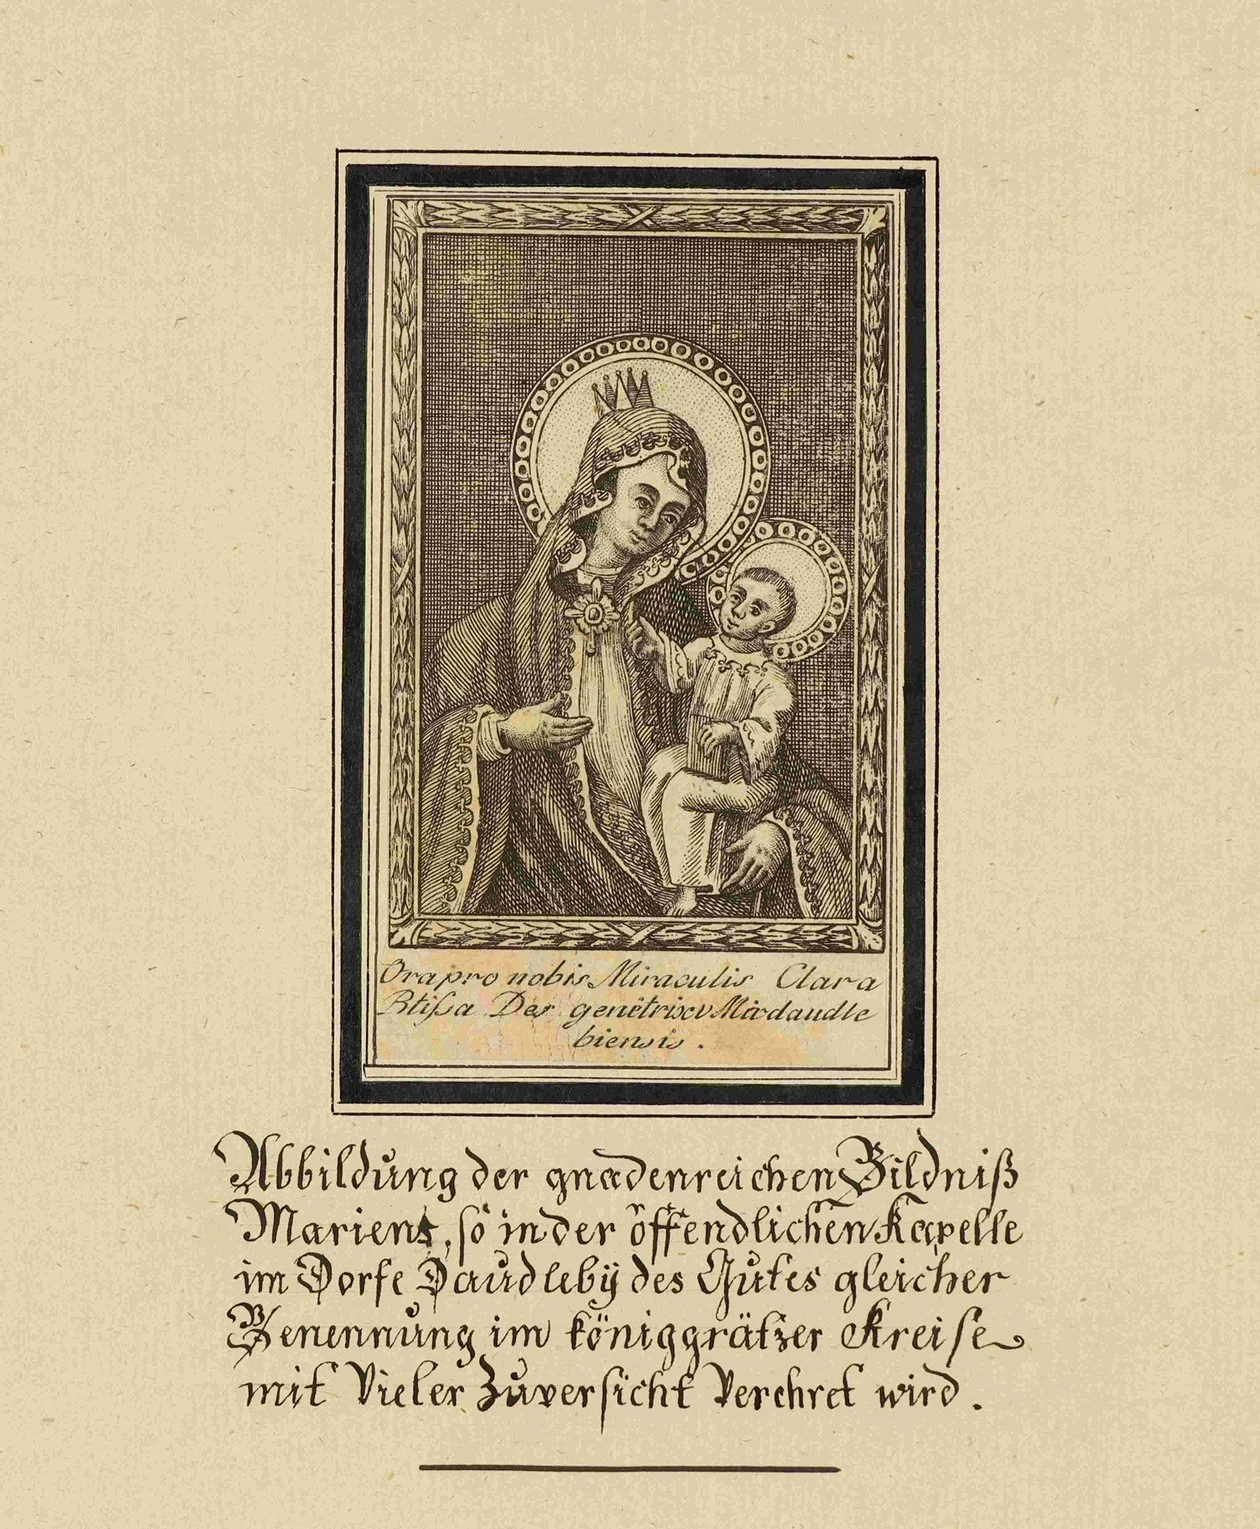 Ora pro nobis Miraculis Clara
Btißa Dei genetrix Mar daudle
biensis .
Abbildung der gnadenreichen Bildniß
Mariens, so in der öffendlichen Kapelle
im Dorfe Daudlebÿ des Gutes gleicher
Benennung im königgrätzer Kreise
mit Vieler Zuversicht Verehret wird .